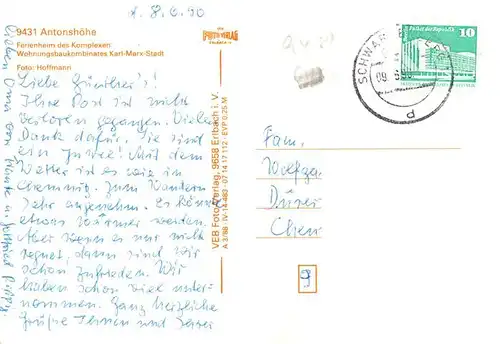 d. 8.6.90
9431 Antonshöhe
Ferienheim des Komplexen
Wohnungsbaukombinates Karl-Marx-Stadt
Foto: Hoffmann
Liebe
Ihre Post ist nicht
verloren gegangen. Vielen
Dank dafür. Sie sind
ein Juwel! Mit dem
Wetter ist es wie in
Chemnitz. Zum Wandern
sehr angenehm. Es könnte
etwas wärmer werden.
Aber wenn es nur nicht
regnet, dann sind wir
schon zufrieden. Wir
haben schon viel unter-
nommen. Ganz herzliche
Grüße Ihnen und
VEB Foto-Verlag, 9658 Erlbach i. V.
A 3/88 IV-14-483 · 07 14 17 112 · EVP 0,25 M
Palast der Republik
10
DDR
09.6.90
d
Fam.
Wolfga
Dürer
Chem